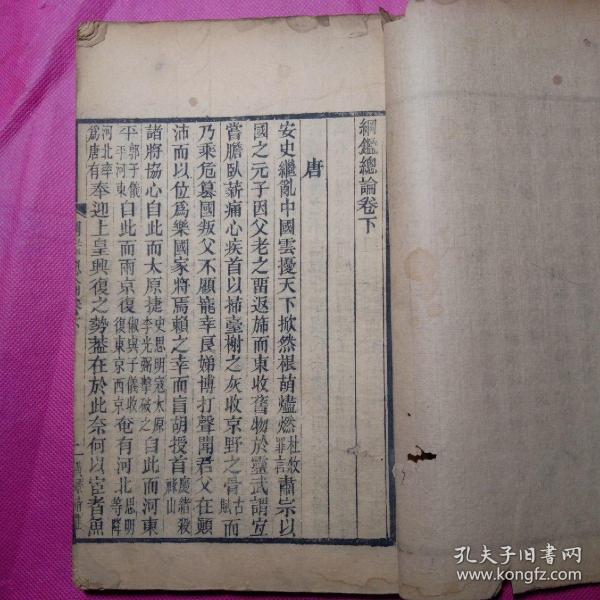 綱鑑總論卷下
唐
安史繼亂中國雲擾天下掀然根萌燼燃杜牧罪言肅宗以
國之元子因父老之畱返斾而東收舊物於靈武謂宜
嘗膽臥薪痛心疾首以掃臺榭之灰收京野之骨古賦而
乃乘危篡國叛父不顧寵幸良娣博打聲聞君父在顚
沛而以位爲樂國家將焉賴之幸而盲胡授首慶緒殺祿山
諸將協心自此而太原捷史思明寇太原李光弼擊破之自此而河東
平郭子儀平河東自此而兩京復俶與子儀收復東京西京奄有河北思明等降
河北率爲唐有奉迎上皇興復之勢葢在於此奈何以宦者魚
綱鑑總論卷下
一
孔夫子旧书网
www.kongfz.com